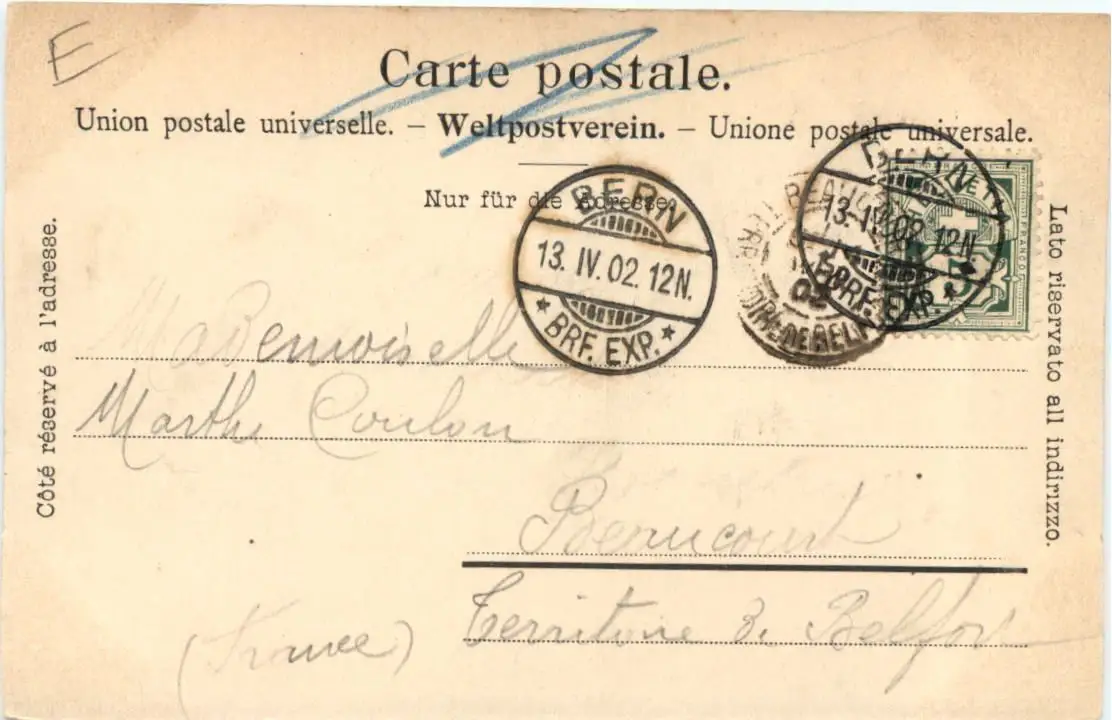 E
Carte postale.
Union postale universelle. – Weltpostverein. – Unione postale universale.
Nur für die Adresse.
Côté réservé à l'adresse.
BERN
13. IV. 02. 12N.
★ BRF. EXP. ★
BERN
13. IV. 02. 12N.
BRF. EXP. ★
BEAUCOURT
02
TERRIT. DE BELFORT
HELVETIA
FRANCO
5
Lato riservato all indirizzo.
Mademoiselle
Marthe Coulon
Beaucourt
Territoire de Belfort
(France)